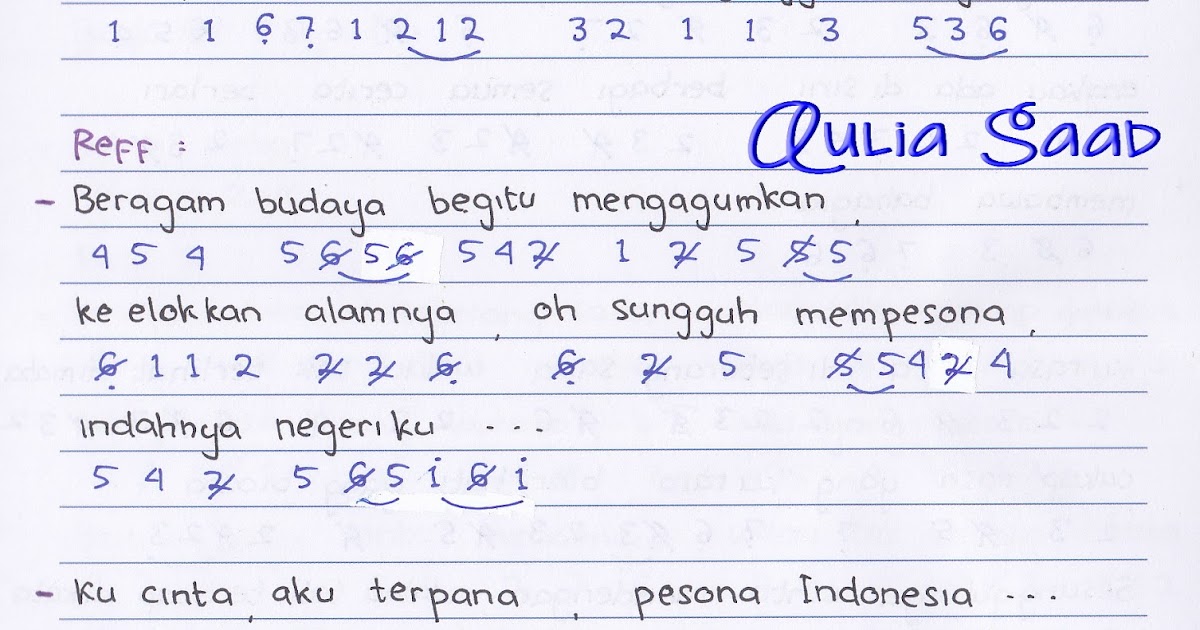 1 1 6̣ 7̣ 1 2 1 2 3 2 1 1 3 5 3 6
Qulia Saad
Reff :
- Beragam budaya begitu mengagumkan,
4 5 4 5 6̸ 5 6̸ 5 4 2̸ 1 2̸ 5 5̸ 5
ke elokkan alamnya, oh sungguh mempesona,
6̸̣ 1 1 2 2̸ 2̸ 6̸̣ 6̸̣ 2̸ 5 5̸ 5 4 2̸ 4
indahnya negeri ku ....
5 4 2̸ 5 6̸ 5 1̇ 6̸ 1̇
- Ku cinta, aku terpana, pesona Indonesia ....